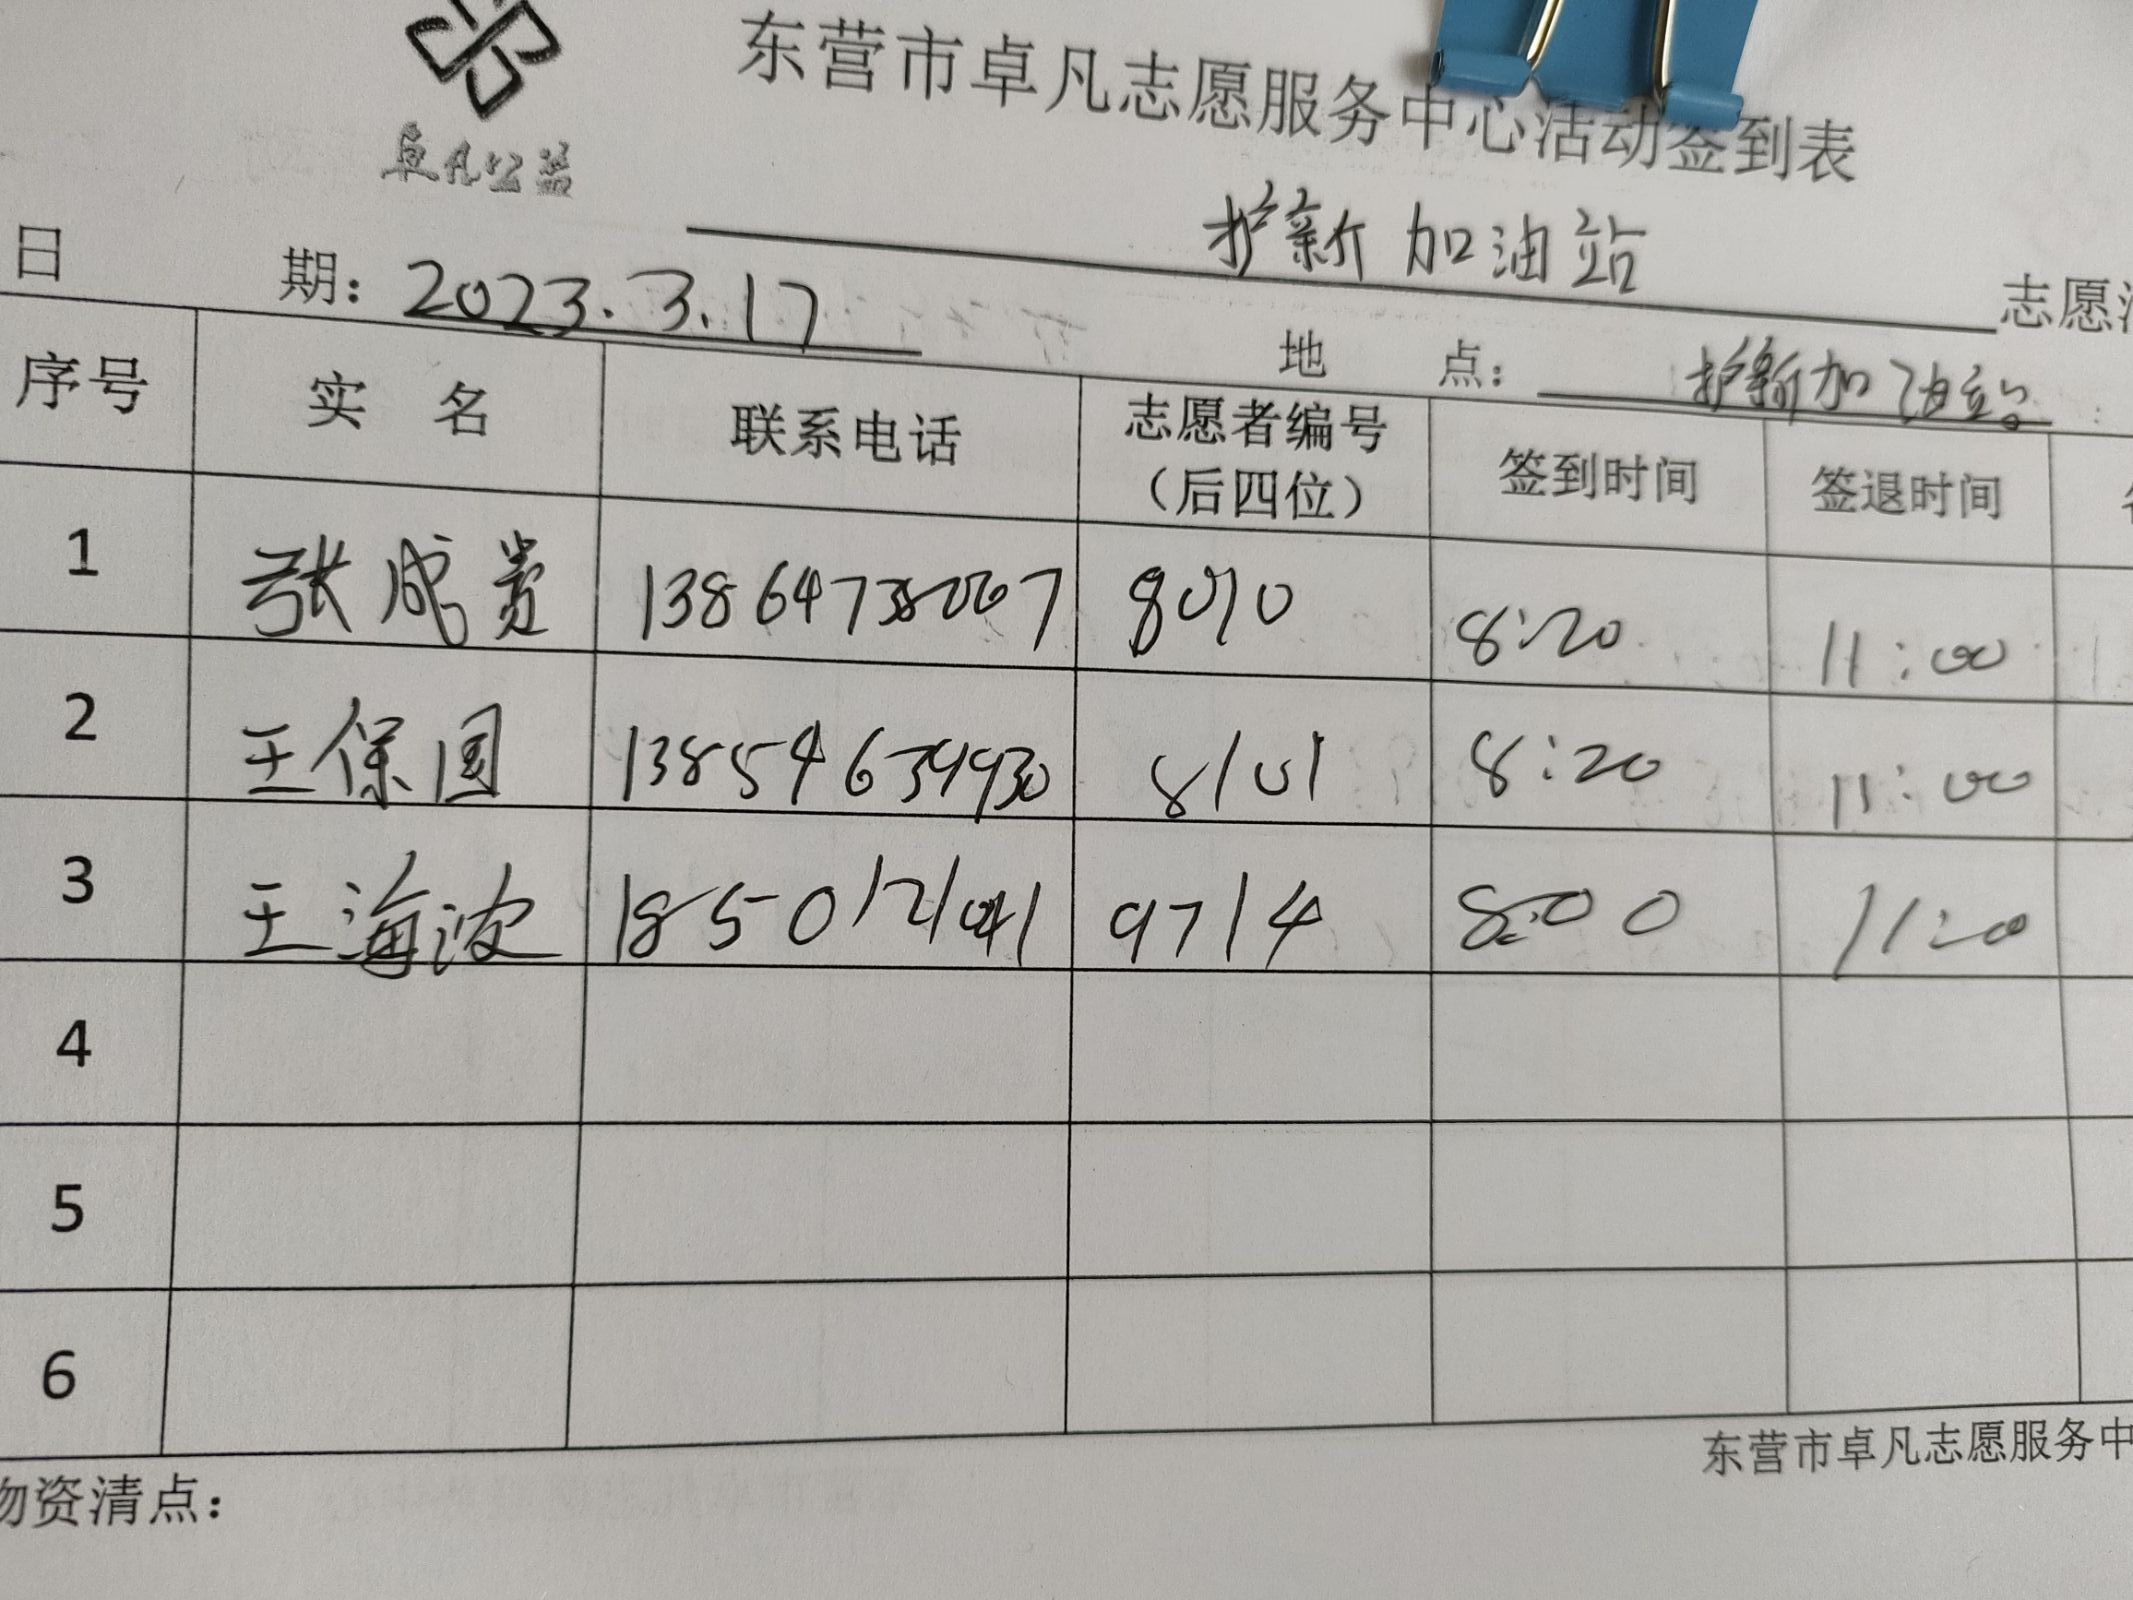 卓凡公益
东营市卓凡志愿服务中心活动签到表
护新加油站 志愿
日 期：2023.3.17 地 点：护新加油站
序号 实 名 联系电话 志愿者编号（后四位） 签到时间 签退时间
1 张成贵 8010 8:20 11:00
2 王保国 13854634930 8101 8:20 11:00
3 王海波 18501721041 9714 8:00 11:20
4
5
6
东营市卓凡志愿服务中
物资清点：